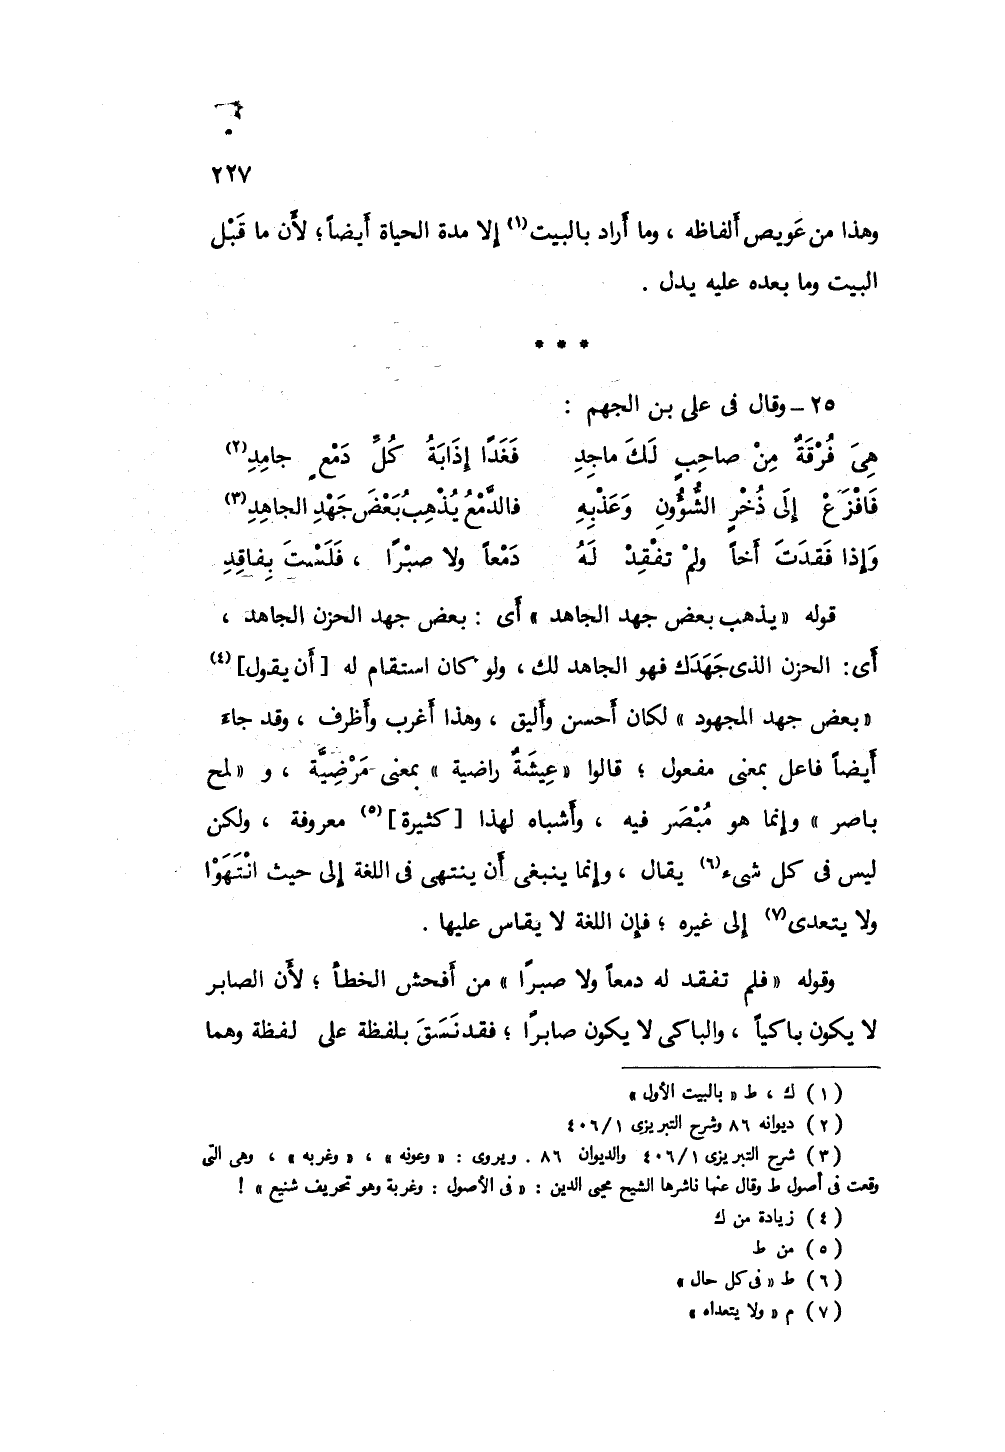 ٢٢٧
وهذا من عَويص أَلفاظه ، وما أَراد بالبيت(١) إلا مدة الحياة أَيضاً ؛ لأَن ما قَبْل
البيت وما بعده عليه يدل .
* * *
٢٥ – وقال فى على بن الجهم :
هِىَ فُرْقَةٌ مِنْ صاحِبٍ لَكَ ماجدِ فَغَدًا إِذَابَةُ كُلِّ دَمْعٍ جامِدِ(٢)
فَافْزَعْ إِلَى ذُخْرِ الشُّؤُونِ وَعَذْبِهِ فالدَّمْعُ يُذْهِبُ بَعْضَ جَهْدِ الجاهِدِ(٣)
وَإِذا فَقَدَتَ أَخاً ولمْ تفْقِدْ لَهُ دَمْعاً ولا صبْرًا ، فَلَسْتَ بِفاقِدِ
قوله « يذهب بعض جهد الجاهد » أَى : بعض جهد الحزن الجاهد ،
أَى : الحزن الذى جَهَدَك فهو الجاهد لك ، ولو كان استقام له [ أَن يقول ](٤)
« بعض جهد المجهود » لكان أَحسن وأَليق ، وهذا أَغرب وأَظرف ، وقد جاءَ
أَيضاً فاعل بمعنى مفعول ؛ قالوا « عِيشَةٌ راضية » بمعنى مَرْضِيَّة ، و « لمح
باصر » وإنما هو مُبْصَر فيه ، وأَشباه لهذا [ كثيرة ](٥) معروفة ، ولكن
ليس فى كل شىء(٦) يقال ، وإنما ينبغى أَن ينتهى فى اللغة إلى حيث انْتَهَوْا
ولا يتعدى(٧) إلى غيره ؛ فإن اللغة لا يقاس عليها .
وقوله « فلم تفقد له دمعاً ولا صبرًا » من أَفحش الخطأ ؛ لأَن الصابر
لا يكون باكياً ، والباكى لا يكون صابرًا ؛ فقد نَسَقَ بلفظة على لفظة وهما
(١) ك ، ط « بالبيت الأول »
(٢) ديوانه ٨٦ وشرح التبريزى ٤٠٦/١
(٣) شرح التبريزى ٤٠٦/١ والديوان ٨٦ . ويروى : « وعونه » ، « وغربه » ، وهى التى
وقعت فى أصول ط وقال عنها ناشرها الشيخ محيى الدين : « فى الأصول : وغربة وهو تحريف شنيع » !
(٤) زيادة من ك
(٥) من ط
(٦) ط « فى كل حال »
(٧) م « ولا يتعداه »